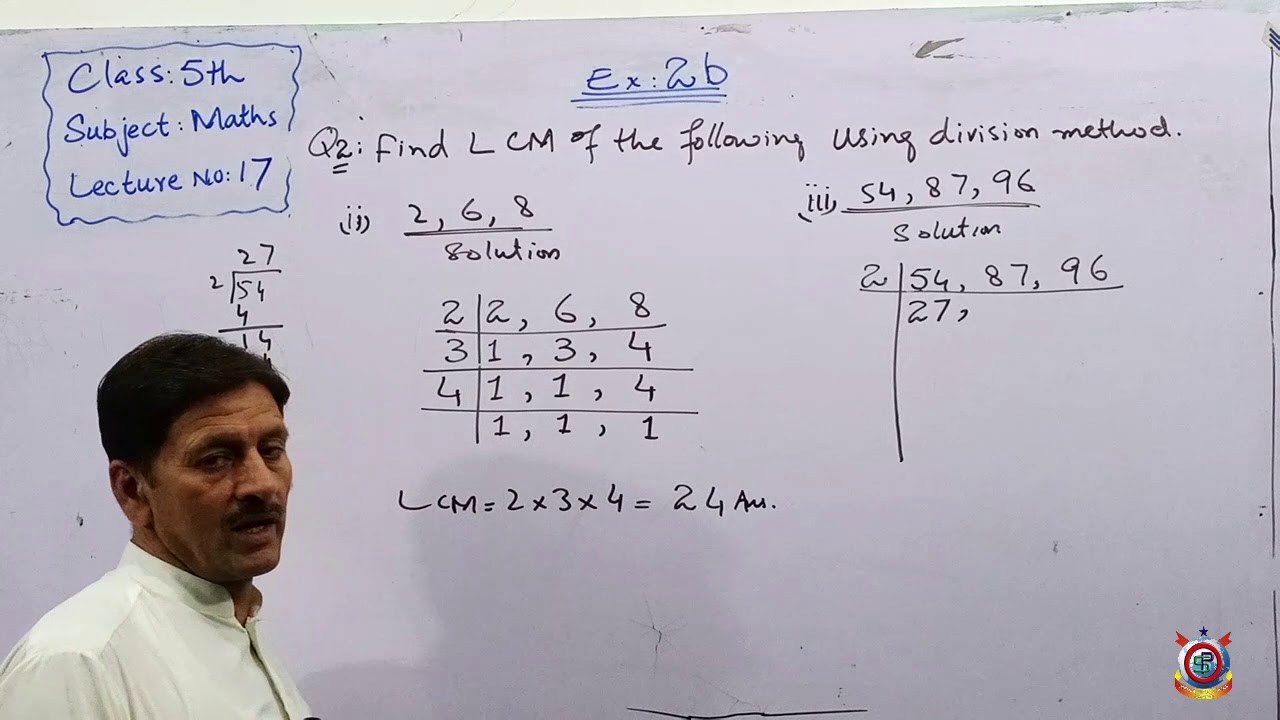 Class: 5th
Subject: Maths
Lecture No: 17
Ex: 2b
Q2: Find LCM of the following using division method.
(ii) 2, 6, 8
Solution
2 | 2, 6, 8
3 | 1, 3, 4
4 | 1, 1, 4
1, 1, 1
LCM = 2 × 3 × 4 = 24 Ans.
(iii) 54, 87, 96
Solution
2 | 54, 87, 96
27,
27
2 54
4
14